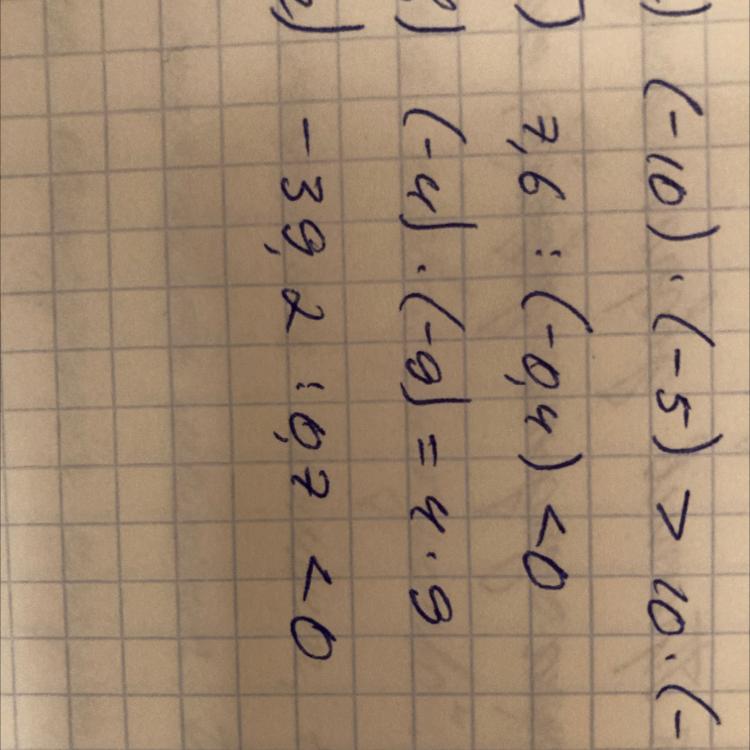 ) (-10) · (-5) > 10 · (-
) 7,6 : (-0,4) < 0
) (-4) · (-9) = 4 · 9
) -39,2 : 0,7 < 0